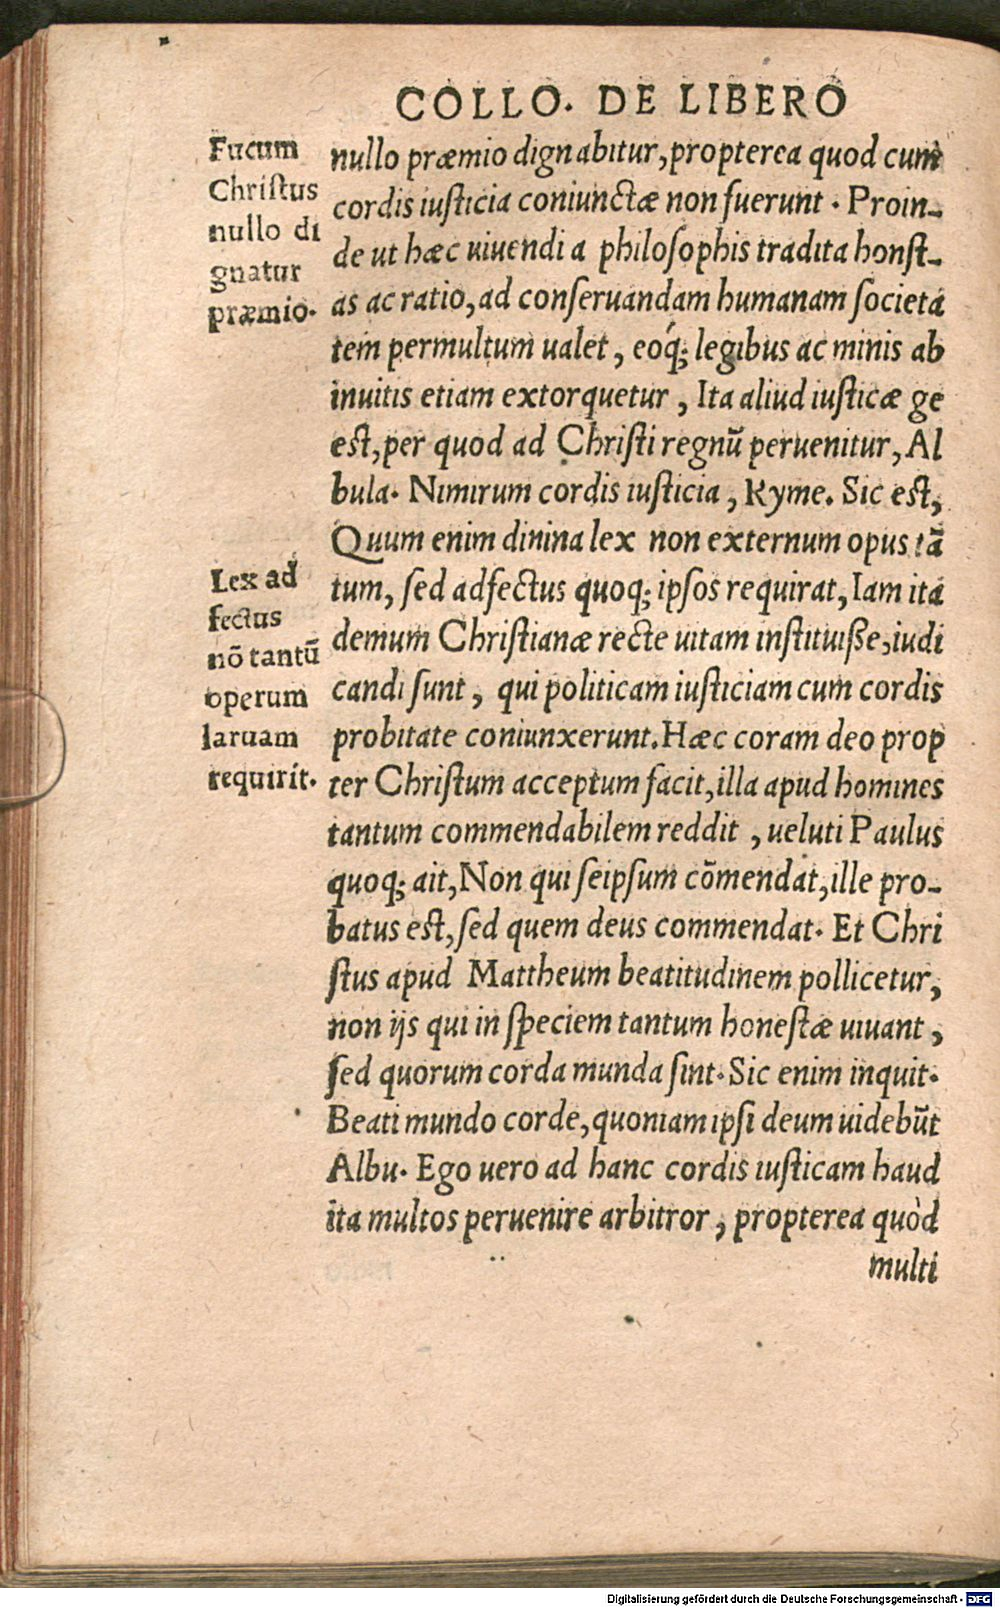 COLLO. DE LIBERO
Fucum
Christus
nullo di
gnatur
præmio.
nullo præmio dignabitur, propterea quod cum
cordis iusticia coniunctæ non fuerunt. Proin-
de ut hæc uiuendi a philosophis tradita honst-
as ac ratio, ad conseruandam humanam societa
tem permultum ualet, eoq́; legibus ac minis ab
inuitis etiam extorquetur, Ita aliud iusticæ ge
est, per quod ad Christi regnū peruenitur, Al
bula. Nimirum cordis iusticia, Kyme. Sic est,
Quum enim dinina lex non externum opus tā
tum, sed adfectus quoq; ipsos requirat, Iam ita
demum Christianæ recte uitam instituiße, iudi
candi sunt, qui politicam iusticiam cum cordis
probitate coniunxerunt. Hæc coram deo prop
ter Christum acceptum facit, illa apud homines
tantum commendabilem reddit, ueluti Paulus
quoq; ait, Non qui seipsum cōmendat, ille pro-
batus est, sed quem deus commendat. Et Chri
stus apud Mattheum beatitudinem pollicetur,
non ijs qui in speciem tantum honestæ uiuant,
sed quorum corda munda sint. Sic enim inquit.
Beati mundo corde, quoniam ipsi deum uidebūt
Albu. Ego uero ad hanc cordis iusticam haud
ita multos peruenire arbitror, propterea quòd
multi
Lex ad
fectus
nō tantū
operum
laruam
requirit.
Digitalisierung gefördert durch die Deutsche Forschungsgemeinschaft - DFG